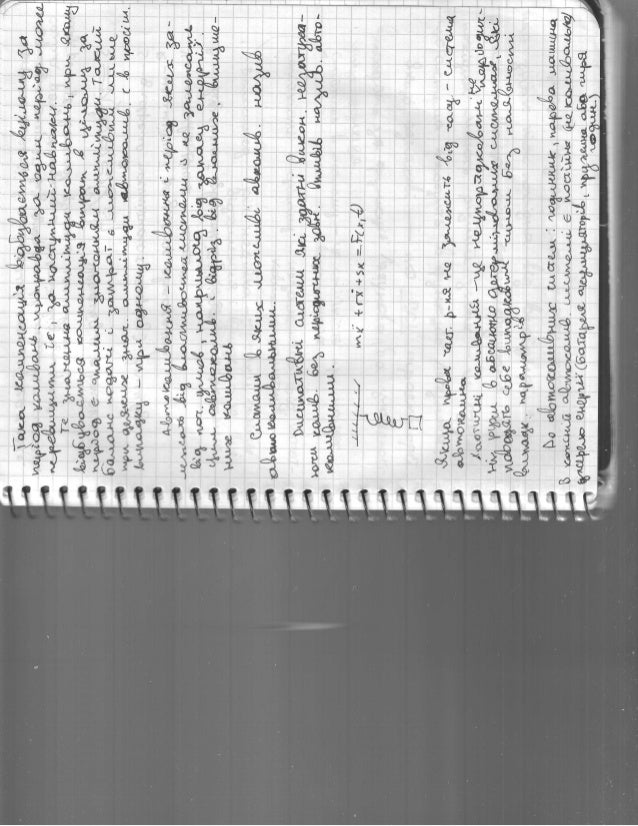 Така компенсація відбувається в цілому за
період коливань, правда за один період може
перевищити її, за наступний навпаки.
Те значення амплітуди коливань, при якому
відбувається компенсація витрат в цілому за
період є сталим значенням амплітуди. Такий
баланс подачі і затрат є можливий лише
при одному. знач. амплітуди автоколив. і в
випадку - при одному.
Автоколивання - коливання і період яких за-
лежать від властивостей системи і не залежать
від поч. умов, наприклад від запасу енергії.
Цим автоколив. і відріз. від власних,
них коливань
Системи в яких можливі автоколив. назив
автоколивальними.
Дисипативні системи які здатні викон. незатуха-
ючі колив. без періодичних зовн. впливів назив. авто-
коливними.
mẍ + rẋ + sx = F(x,t)
Якщо права част. р-ня не залежить від часу - система
автономна
Хаотичні коливання - це неупорядковані не періодич-
ні рухи в абсолютно детермінованих системах, які
поводять себе випадковим чином без наявності
випадк. параметрів
До автоколивних систем: годинник, парова машина
В кожній автоколив. системі є постійне (не коливальне)
джерело енергії (батарея акумуляторів, пружина або гиря
годин.)